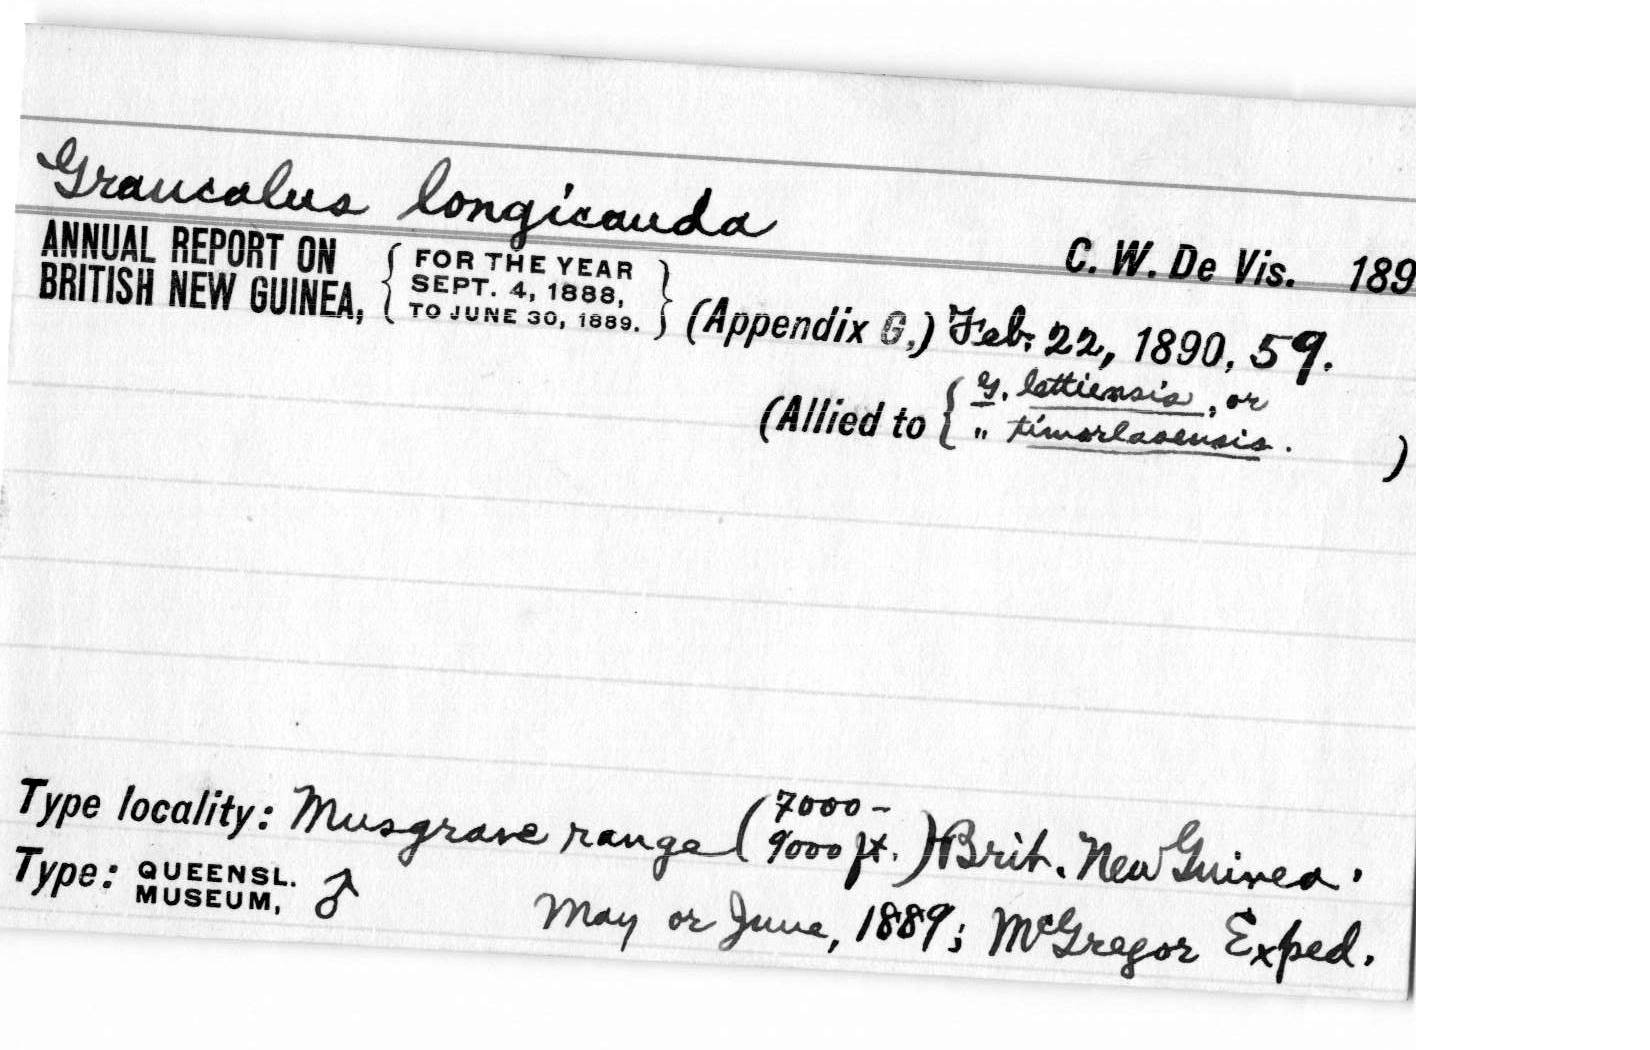 Graucalus longicauda
C. W. De Vis. 189
ANNUAL REPORT ON
BRITISH NEW GUINEA,
{ FOR THE YEAR
SEPT. 4, 1888,
TO JUNE 30, 1889. }
(Appendix G,) Feb. 22, 1890, 59.
(Allied to { G. lettiensis, or
" timorlaoensis. )
Type locality: Musgrave range (7000-
9000 ft.) Brit. New Guinea.
Type: QUEENSL.
MUSEUM, ♂
May or June, 1889; McGregor Exped.